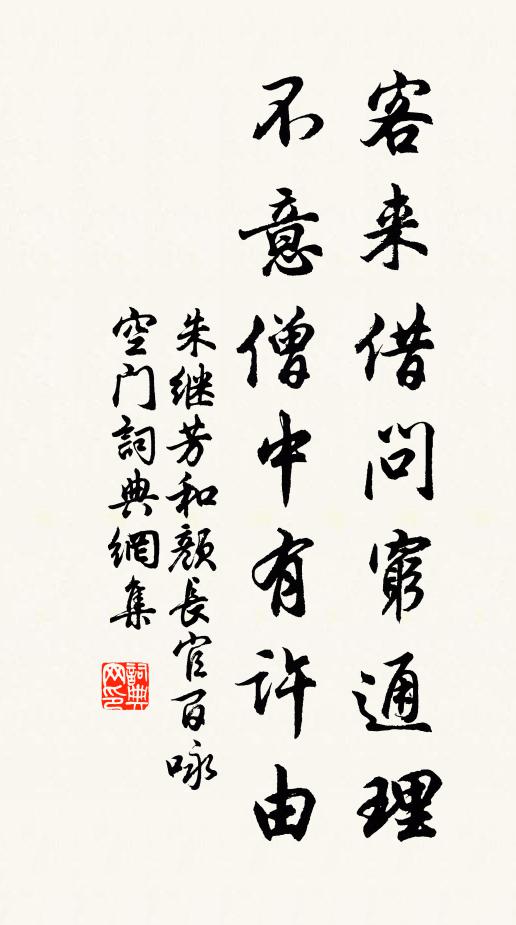 客来借问窮通理
不意僧中有許由
朱继芳和颜长官百咏
空门詞典網集
詞典网印